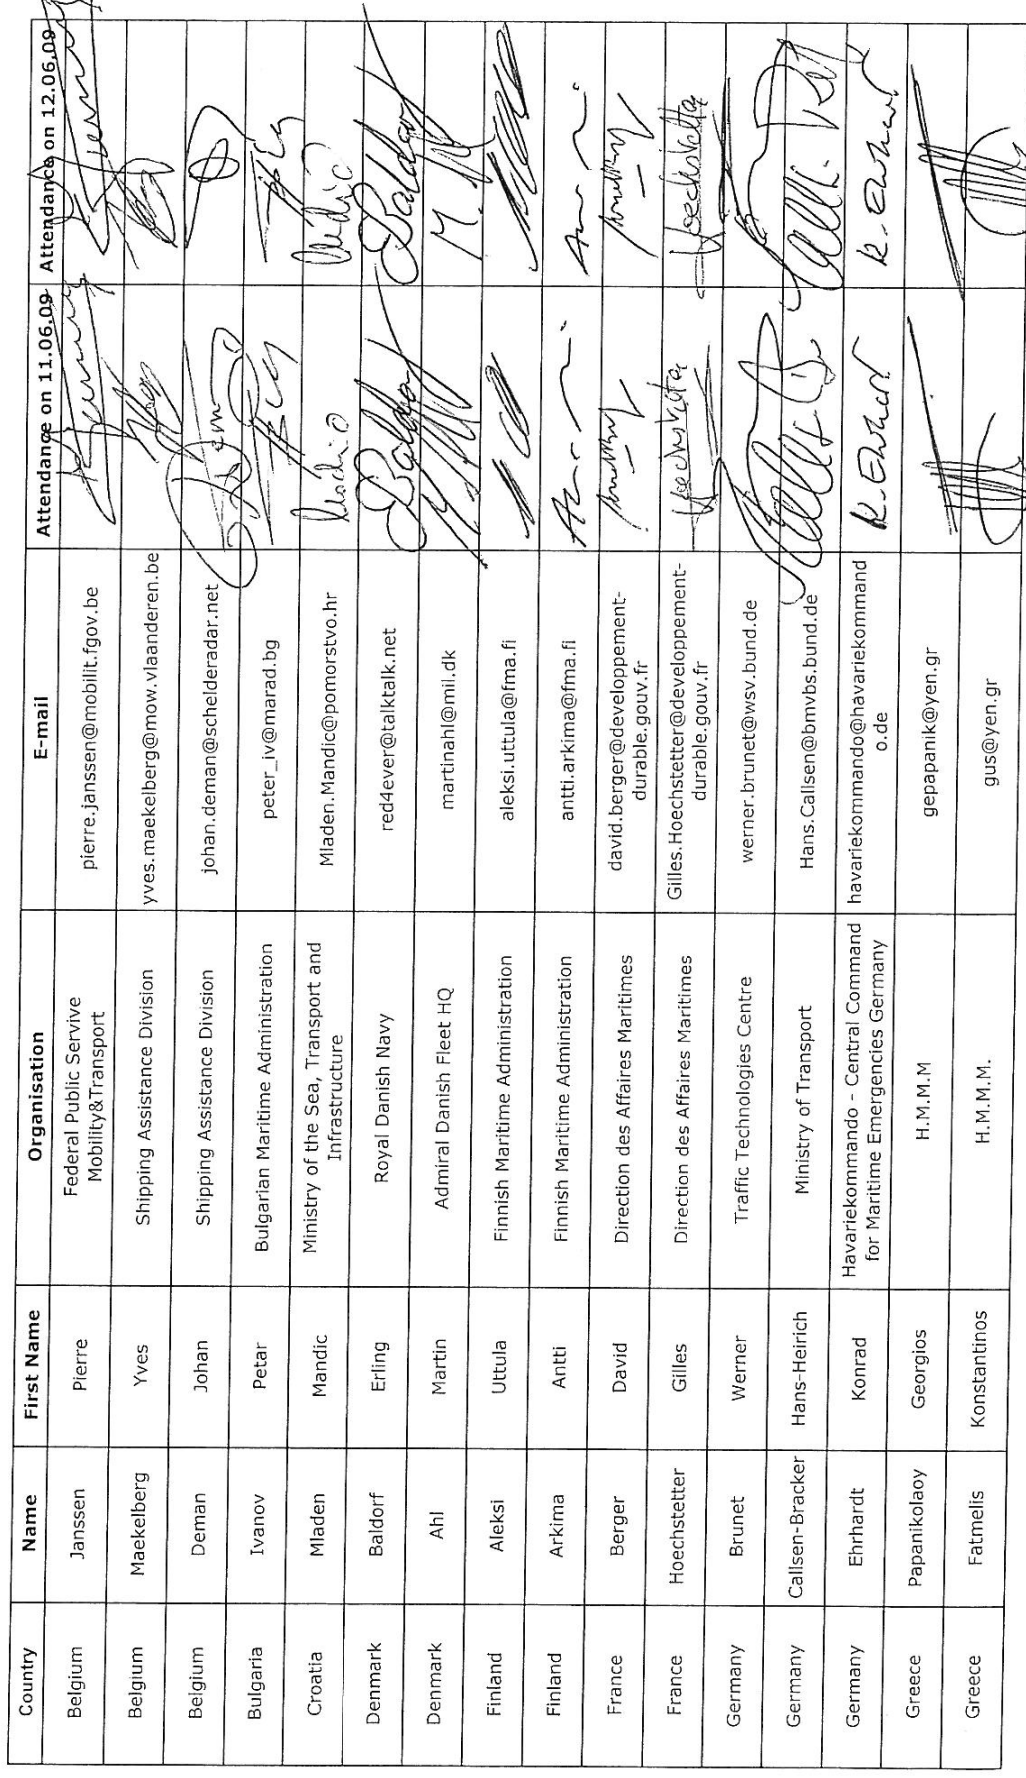 Country Name First Name Organisation E-mail Attendance on 11.06.09 Attendance on 12.06.09
Belgium Janssen Pierre Federal Public Servive pierre.janssen@mobilit.fgov.be
Mobility&Transport
Belgium Maekelberg Yves Shipping Assistance Division yves.maekelberg@mow.vlaanderen.be
Belgium Deman Johan Shipping Assistance Division johan.deman@schelderadar.net
Bulgaria Ivanov Petar Bulgarian Maritime Administration peter_iv@marad.bg
Croatia Mladen Mandic Ministry of the Sea, Transport and Mladen.Mandic@pomorstvo.hr
Infrastructure
Denmark Baldorf Erling Royal Danish Navy red4ever@talktalk.net
Denmark Ahl Martin Admiral Danish Fleet HQ martinahl@mil.dk
Finland Aleksi Uttula Finnish Maritime Administration aleksi.uttula@fma.fi
Finland Arkima Antti Finnish Maritime Administration antti.arkima@fma.fi
France Berger David Direction des Affaires Maritimes david.berger@developpement-
durable.gouv.fr
France Hoechstetter Gilles Direction des Affaires Maritimes Gilles.Hoechstetter@developpement-
durable.gouv.fr
Germany Brunet Werner Traffic Technologies Centre werner.brunet@wsv.bund.de
Germany Callsen-Bracker Hans-Heirich Ministry of Transport Hans.Callsen@bmvbs.bund.de
Germany Ehrhardt Konrad Havariekommando - Central Command havariekommando@havariekommand
for Maritime Emergencies Germany o.de
Greece Papanikolaoy Georgios H.M.M.M gepapanik@yen.gr
Greece Fatmelis Konstantinos H.M.M.M. gus@yen.gr